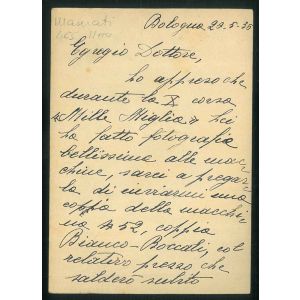 Bologna 29-5-36
Egregio Dottore,
ho appreso che
durante la X corsa
"Mille Miglia" lei
ha fatto fotografia
bellissima alle mac=
chine, sarei a pregar=
la di inviarmi una
coppia della macchi=
na N 52, coppia
Bianco-Boccali, col
relativo prezzo che
salderò subito